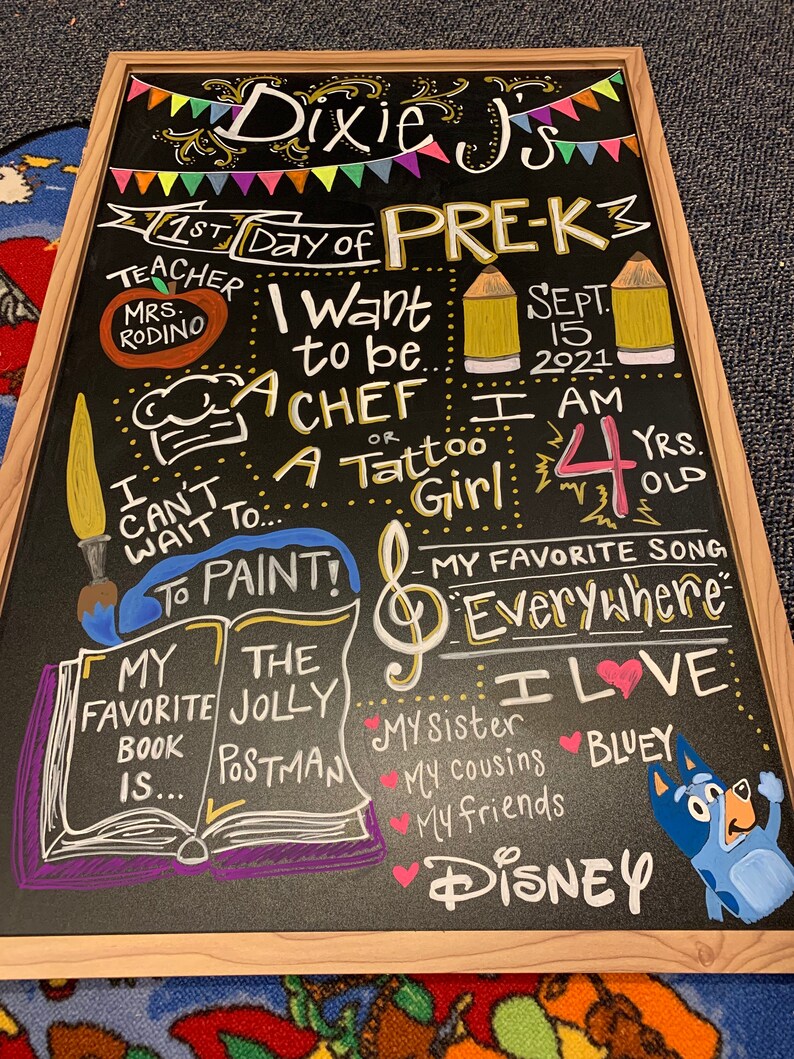 Dixie J's
1ST Day of PRE-K
TEACHER
MRS.
RODINO
I Want
to be...
A CHEF
OR
A Tattoo
Girl
SEPT.
15
2021
I AM
4 YRS.
OLD
I
CAN'T
WAIT TO...
To PAINT!
MY FAVORITE SONG
"Everywhere"
MY
FAVORITE
BOOK
IS...
THE
JOLLY
POSTMAN
I LOVE
My sister
My cousins
My friends
DISNEY
BLUEY